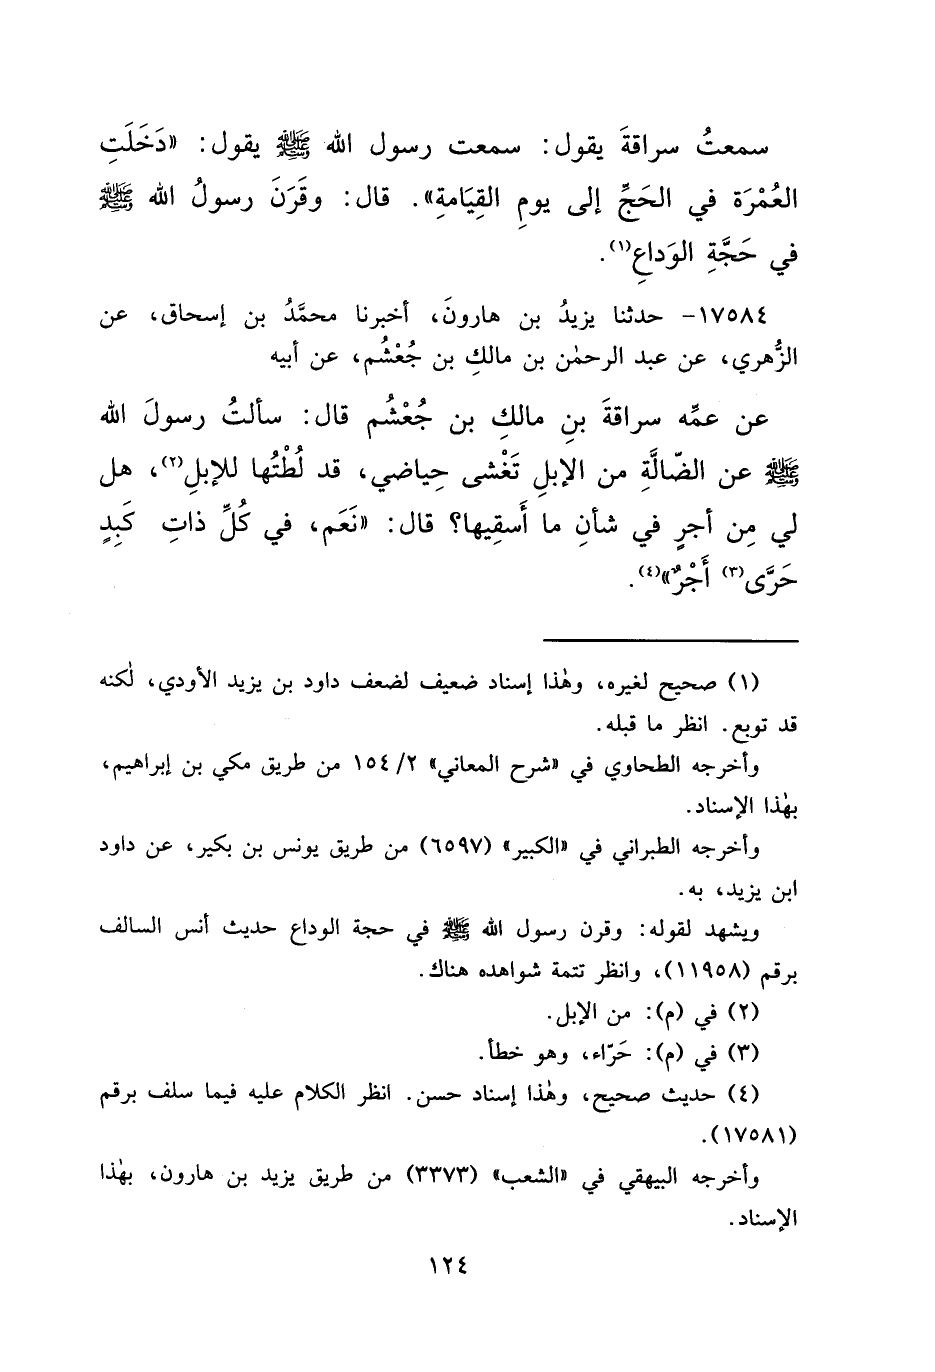 سمعتُ سراقةَ يقول: سمعت رسول الله ﷺ يقول: «دَخَلَتِ
العُمْرَة في الحَجِّ إلى يومِ القِيَامةِ». قال: وقَرَنَ رسولُ الله ﷺ
في حَجَّةِ الوَداعِ(١).
١٧٥٨٤- حدثنا يزيدُ بن هارونَ، أخبرنا محمَّدُ بن إسحاق، عن
الزُّهري، عن عبد الرحمٰن بن مالكِ بن جُعْشُم، عن أبيه
عن عمِّه سراقةَ بنِ مالكِ بن جُعْشُم قال: سألتُ رسولَ الله
ﷺ عن الضّالَّةِ من الإبلِ تَغْشى حِياضي، قد لُطْتُها للإبلِ(٢)، هل
لي مِن أجرٍ في شأنِ ما أَسقِيها؟ قال: «نَعَم، في كُلِّ ذاتِ كَبِدٍ
حَرَّى(٣) أَجْرٌ»(٤).
(١) صحيح لغيره، وهٰذا إسناد ضعيف لضعف داود بن يزيد الأودي، لٰكنه
قد توبع. انظر ما قبله.
وأخرجه الطحاوي في «شرح المعاني» ١٥٤/٢ من طريق مكي بن إبراهيم،
بهٰذا الإسناد.
وأخرجه الطبراني في «الكبير» (٦٥٩٧) من طريق يونس بن بكير، عن داود
ابن يزيد، به.
ويشهد لقوله: وقرن رسول الله ﷺ في حجة الوداع حديث أنس السالف
برقم (١١٩٥٨)، وانظر تتمة شواهده هناك.
(٢) في (م): من الإبل.
(٣) في (م): حَرّاء، وهو خطأ.
(٤) حديث صحيح، وهٰذا إسناد حسن. انظر الكلام عليه فيما سلف برقم
(١٧٥٨١).
وأخرجه البيهقي في «الشعب» (٣٣٧٣) من طريق يزيد بن هارون، بهٰذا
الإسناد.
١٢٤